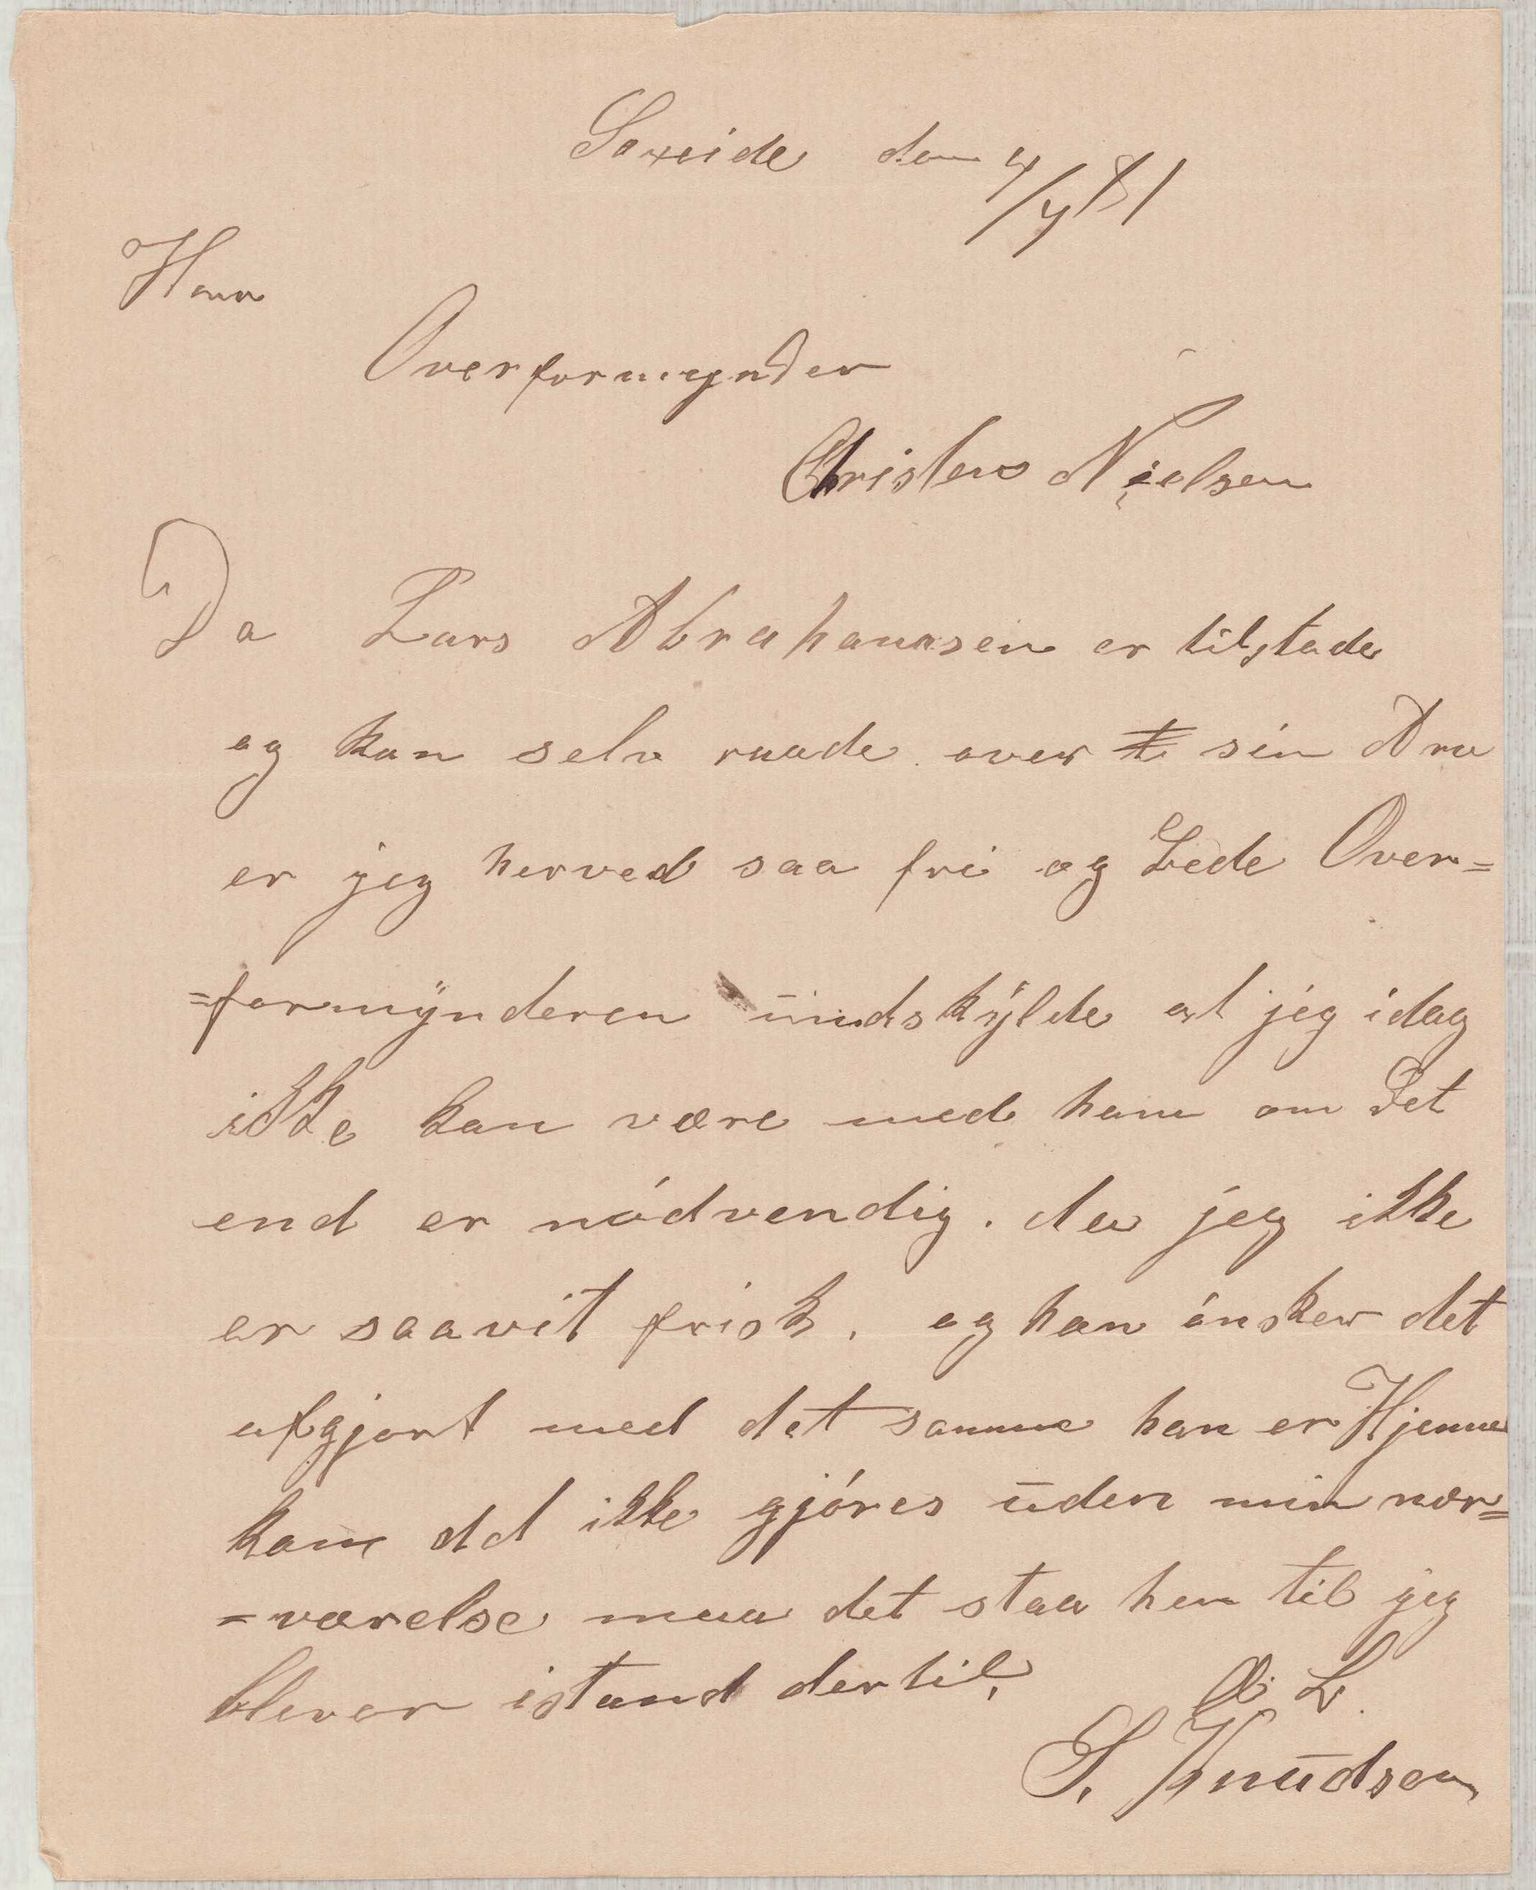 Saxeide den 4/4 81
Herr
Overformynder
Christen Nielsen
Da Lars Abrahamsen er tilstede
og kan selv raade over sin Arv
er jeg herved saa fri og bede Over=
=formynderen undskylde at jeg idag
ikke kan være med ham om det
end er nódvendig. da jeg ikke
er saavit frisk. og han ónsker det
afgjort med det samme han er Hjemme
kan det ikke gjóres uden min nær=
=værelse maa det staa hen til jeg
blever istand dertil.
S. Knudsen